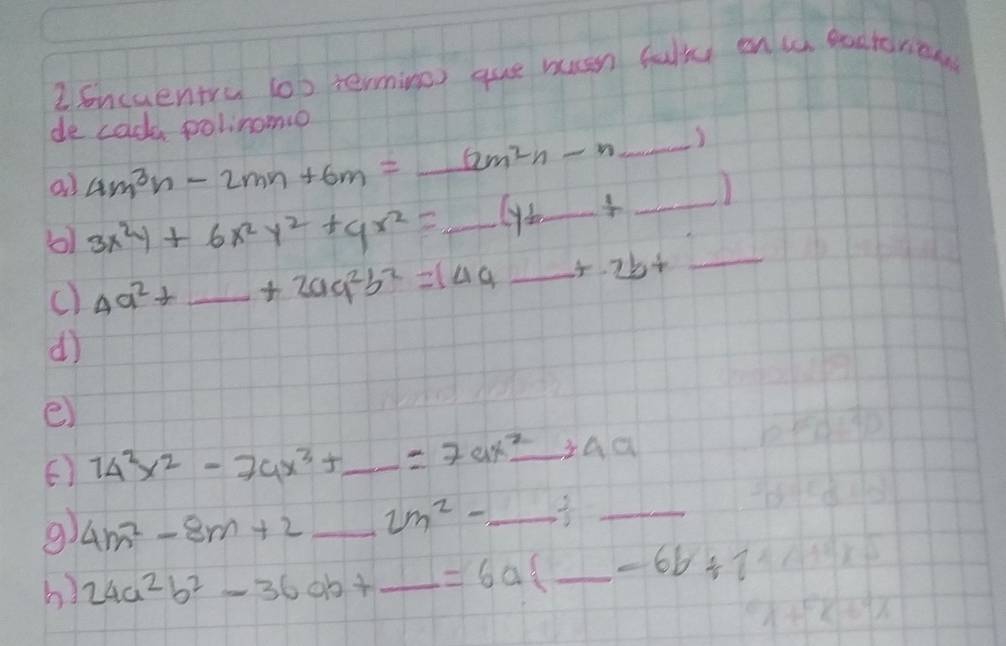 2 Encuentra los terminos que hacen falta en la
de cada polinomio
a) 4m³n - 2mn + 6m = ___(2m²n - n ___)
b) 3x²y + 6x²y² + 9x² = ___(y+___ + ___)
c) 4a² + ___ + 2aa²b² = (4a ___ + 2b + ___
d)
e)
f) 7a²x² - 7ax³ + ___ = 7ax² ___ + 4a
g) 4m² - 8m + 2 ___ 2m² - ___ ÷ ___
h) 24a²b² - 36ab + ___ = 6a( ___ - 6b ÷ 7